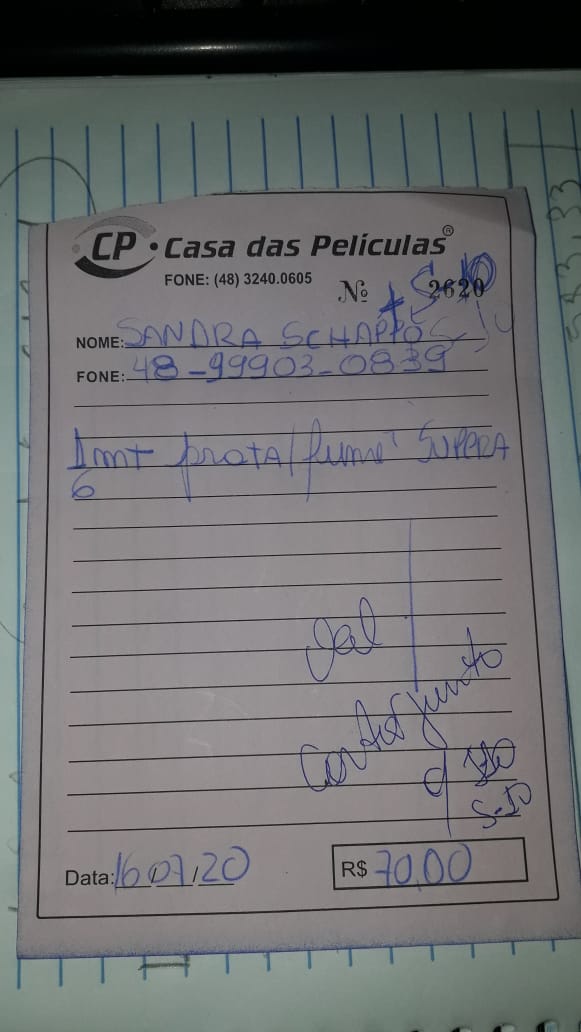 CP • Casa das Películas®
FONE: (48) 3240.0605
Nº 2620
NOME: SANDRA SCHAPPO
FONE: 48-99903-0839
1mt prata/fumê SUPERA
6
Cortar junto
S-10
Data: 16/07/20
R$ 70,00